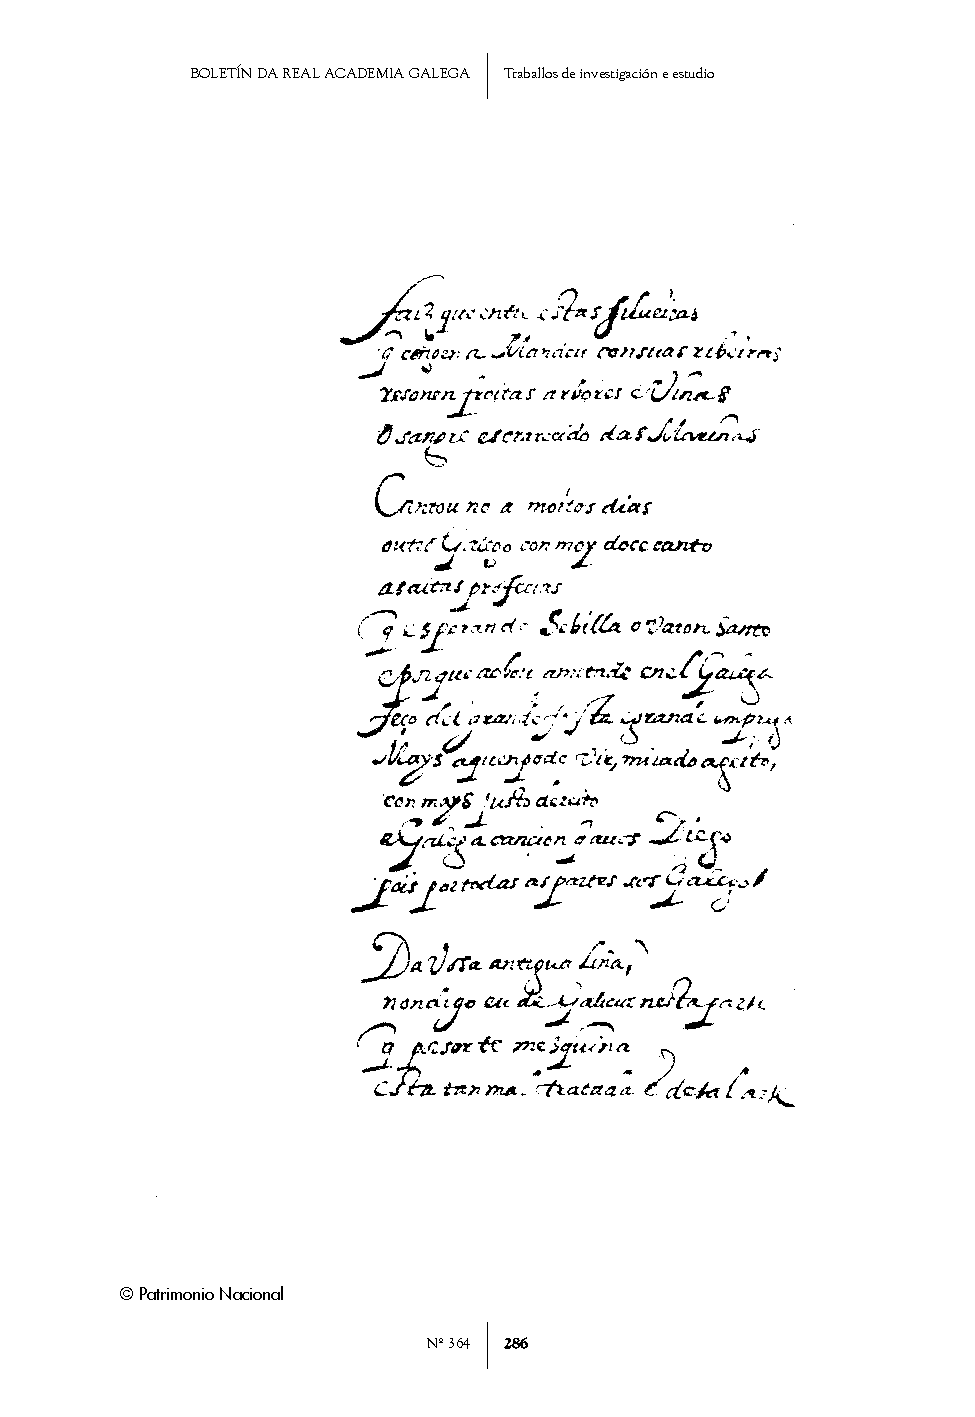 BOLETÍN DA REAL ACADEMIA GALEGA
Traballos de investigación e estudio
faiz que entre estas silueiras
q ceñgen a Mandeu con suas ribeiras
resonen froitas arbores e Viñas
O sangre escrarecido das Mariñas
Cantou no a moitos dias
outro Galego con moy doce canto
as altas profecias
q esperando Sebilla o Varon Santo
e por que aobeu en el Galega
feço del grande festa e grande emprega
Mays a quen pode Vir, mirado a geito,
con mays justo dereito
a Galega cancion q auos Diego
pois por todas as partes sos Galego
Da Vosa antigua Liña,
non digo eu de Galicia nesta parte
q por sorte mesquiña
esta tan mal tratada e de tal arte
© Patrimonio Nacional
Nº 364
286